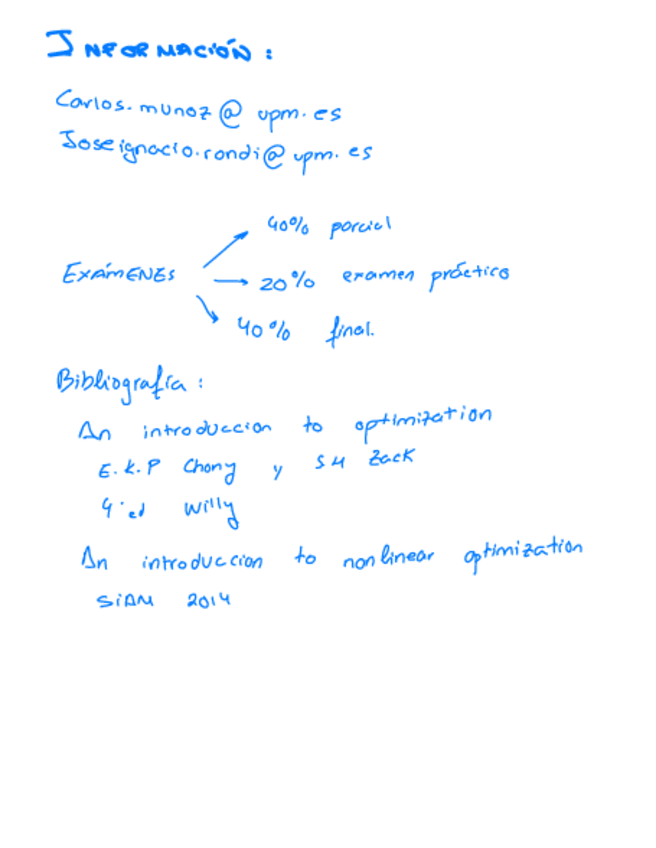 INFORMACIÓN:
Carlos.munoz@upm.es
Joseignacio.rondi@upm.es
40% parcial
EXÁMENES → 20% examen práctico
40% final.
Bibliografía:
An introduccion to optimization
E.K.P Chong y SH Zack
4ªed Willy
An introduccion to nonlinear optimization
SIAM 2014